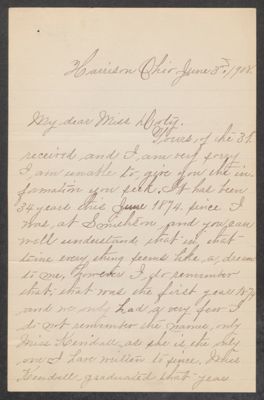 Harrison Ohio June 3rd, 1908.
My dear Miss Doty.
Yours of the 31.
received and I am very sorry
I am unable to give you the in-
formation you seek. It has been
34 years this June 1874 since I
was at and you can
well understand that in that
time every thing seems like a dream
to me, however I do remember
that, that was the first year 1874
and we only had a very few I
do not remember the names, only
Miss Kendall, as she is the only
one I have written to since, Miss
Kendall, graduated that year